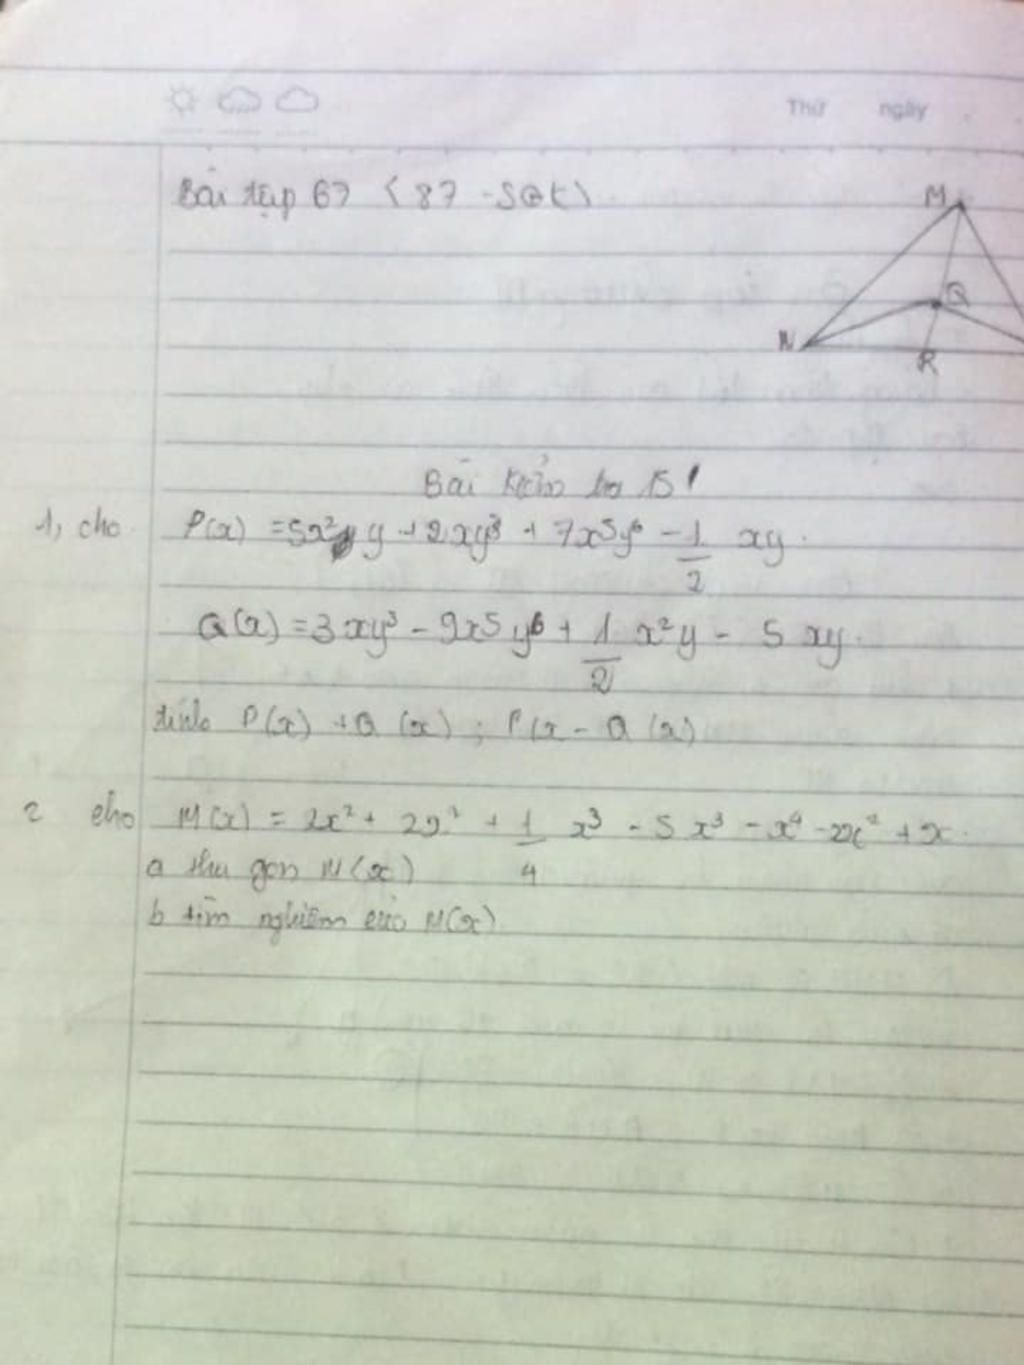 Thứ ngày
Bài tập 67 (87 - SGK)
M
Q
N
R
Bài kiểm tra 15'
1, cho P(x) = 5x²y + 2xy³ + 7x⁵y⁶ - 1/2 xy.
Q(x) = 3xy³ - 9x5y⁶ + 1/2 x²y - 5 xy.
tính P(x) + Q(x) ; P(x - Q(x)
2 cho M(x) = 2x² + + 1/4 x³ - 5x³ - x⁴ - + x.
a thu gọn M(x)
b tìm nghiệm của M(x)